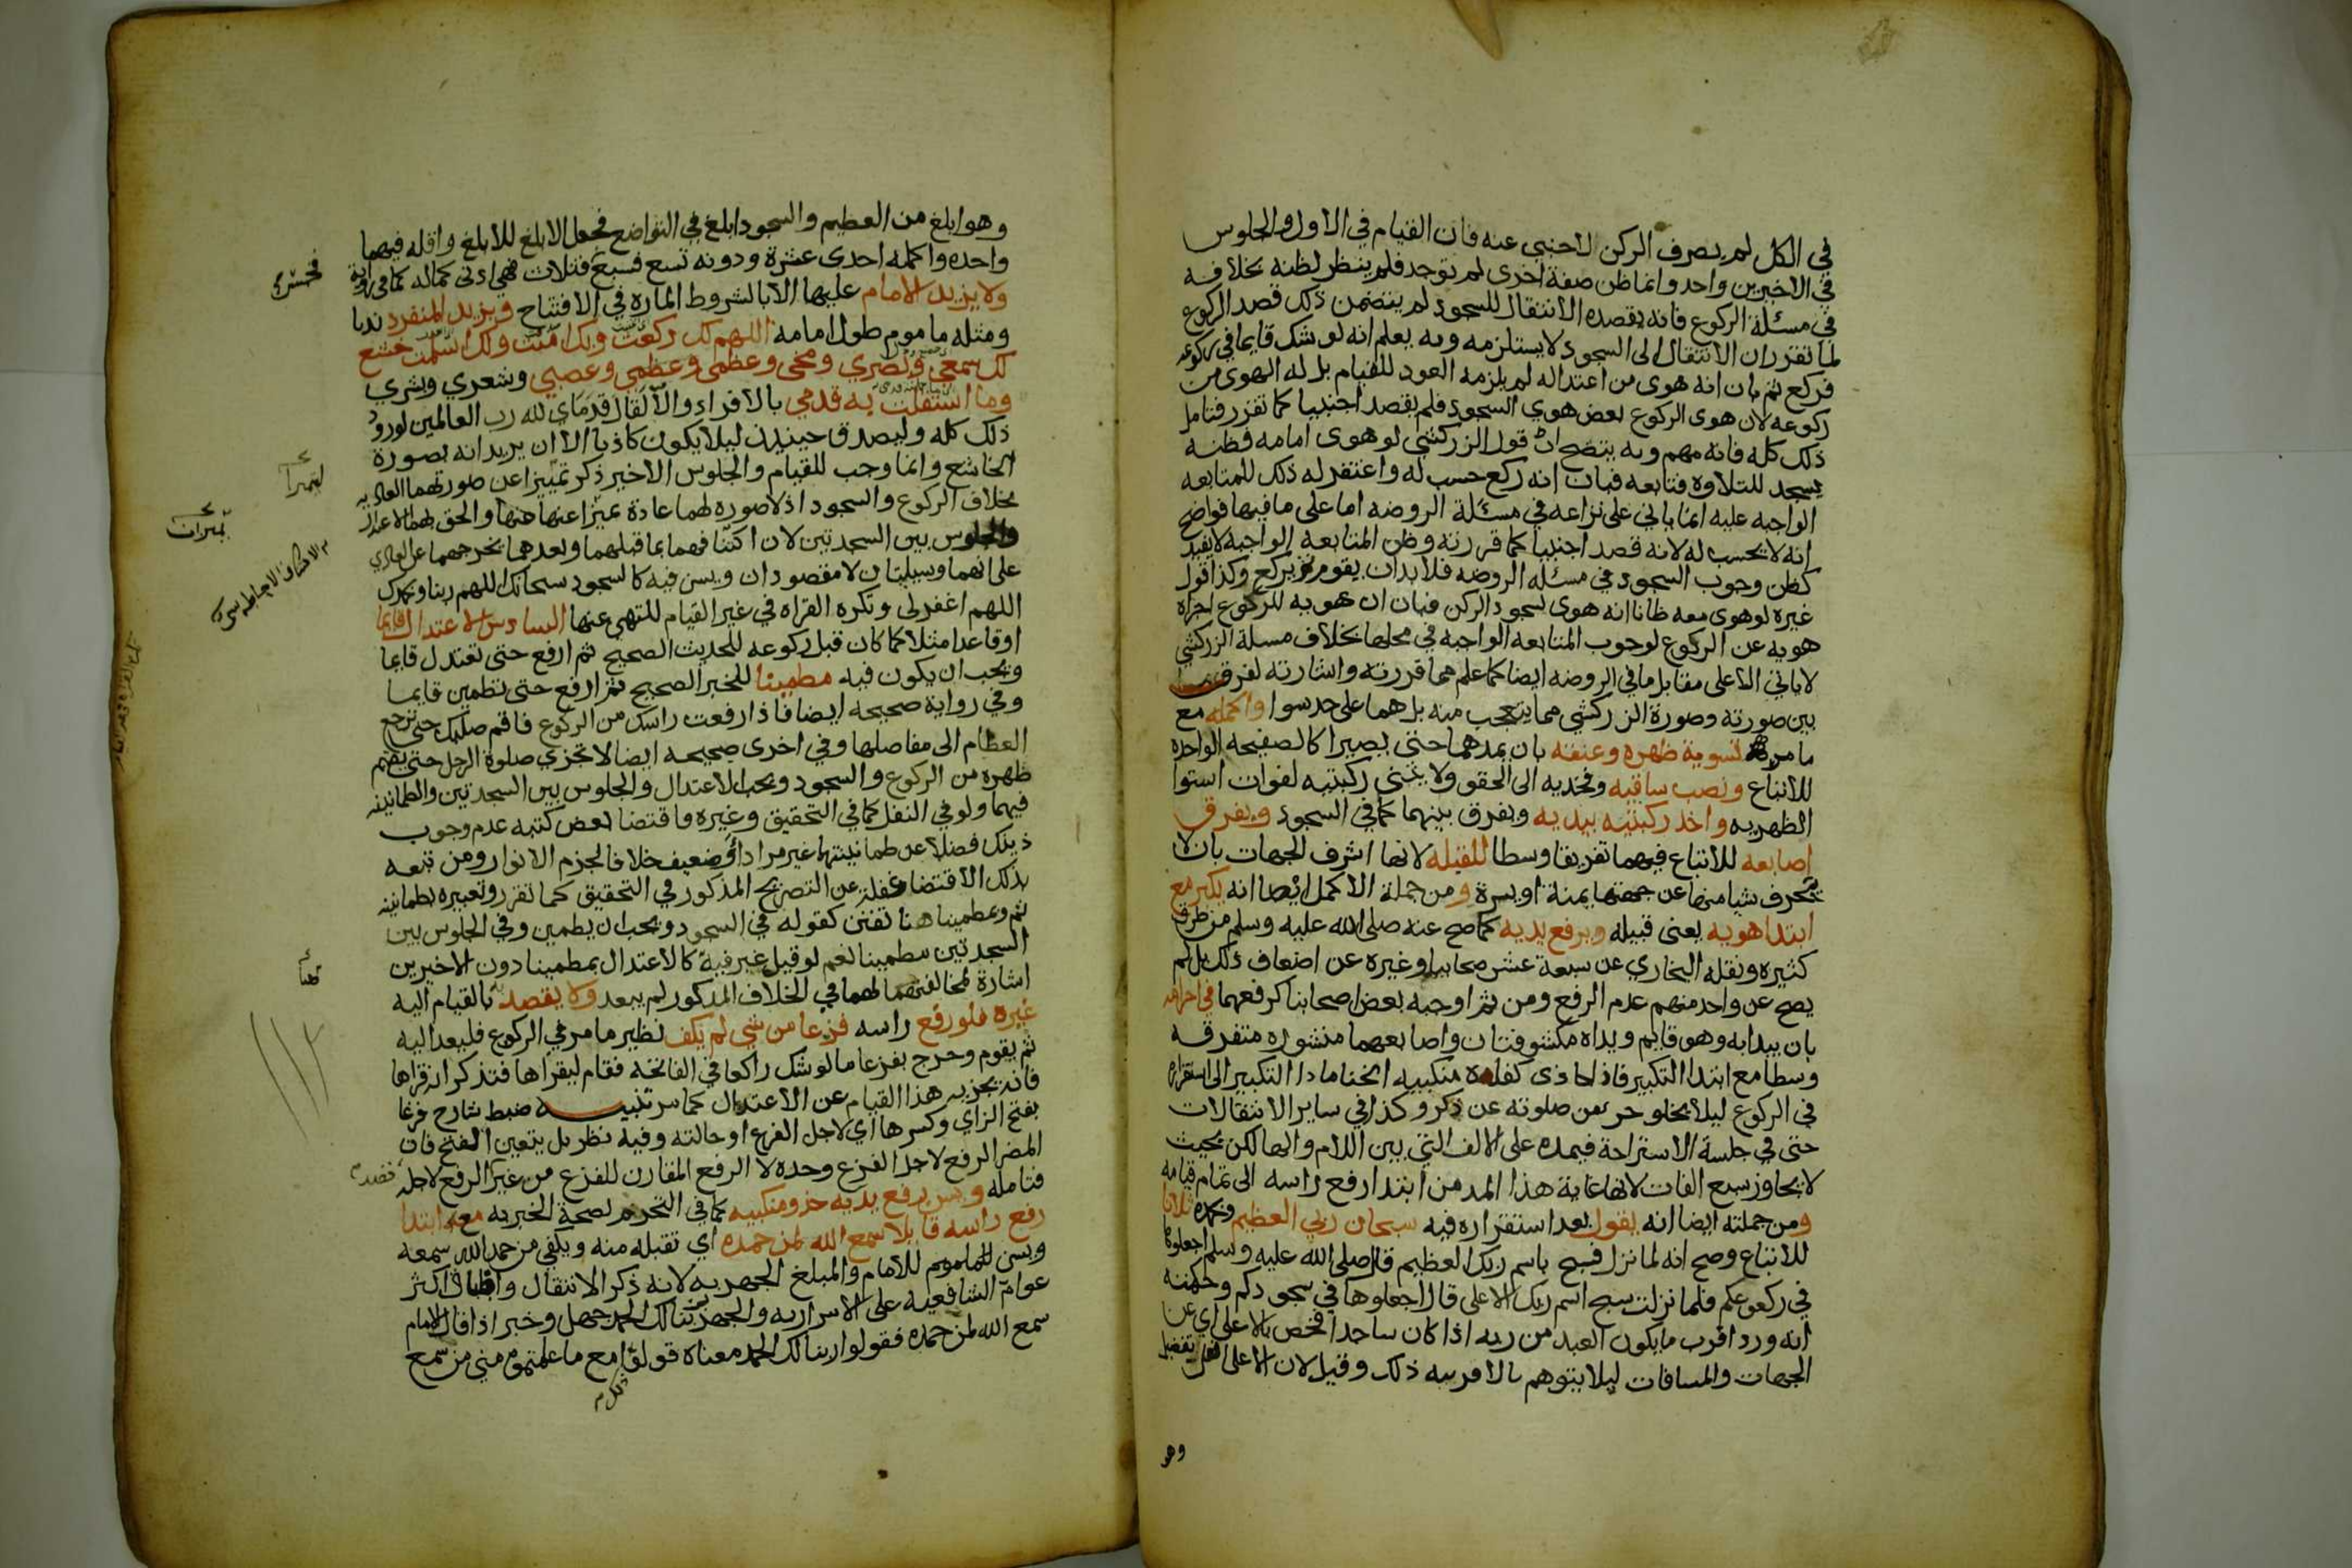 في الكل لم يصرف الركن لاجنبي عنه فان القيام في الاول والجلوس
في الاخيرين واحد وانما ظن صفة اخرى لم توجد فلم ينظر لظنه بخلافه
في مسئلة الركوع فانه بقصده الانتقال للسجود لم يتضمن ذلك قصد الركوع
لما تقرر ان الانتقال الى السجود لا يستلزمه وبه يعلم انه لو شك قايما في ركوعه
فركع ثم بان انه هوى من اعتداله لم يلزمه العود للقيام بل له الهوى من
ركوعه لان هوى الركوع بعض هوي السجود فلم يقصد اجنبيا كما تقرر فتامل
ذلك كله فانه مهم وبه يتضح ان قول الزركشي لو هوى امامه فظنه
يسجد للتلاوة فتابعه فبان انه ركع حسب له واغتفر له ذلك للمتابعه
الواجبه عليه انما ياتي على نزاعه في مسئلة الروضه اما على ما فيها فواضح
انه لا يحسب له لانه قصد اجنبيا كما قررته وظن المتابعه الواجبه لا يفيد
كظن وجوب السجود في مسئله الروضه فلا بد ان يقوم ثم يركع وكذا قول
غيره لو هوى معه ظانا انه هوى لسجود الركن فبان ان هويه للركوع اجزاه
هويه عن الركوع لوجوب المتابعه الواجبه في محلها بخلاف مسلة الزركشي
لا ياتي الا على مقابل ما في الروضه ايضا كما علم مما قررته واشارته لفرق
بين صورته وصورة الزركشي مما يتعجب منه بل هما على حد سوا واكمله مع
ما مر تسوية ظهره وعنقه بان يمدهما حتى يصيرا كالصفيحه الواحده
للاتباع ونصب ساقيه وفخديه الى الحقو ولا يثنى ركبتيه لفوات استوا
الظهر به واخذ ركبتيه بيديه وتفرق بينهما كما في السجود وبفرق
اصابعه للاتباع فيهما تفريقا وسطا للقبله لانها اشرف الجهات بان لا
يتحرف شيا منها عن جهتها يمنة او يسرة ومن جملة الاكمل ايضا انه يكبر مع
ابتدا هويه يعنى قبيله ويرفع يديه كما صح عنه صلى الله عليه وسلم من طرق
كثيره ونقله البخاري عن سبعة عشر صحابيا وغيره عن اضعاف ذلك بل لم
يصح عن واحد منهم عدم الرفع ومن ثم اوجبه بعض اصحابنا كرفعهما في احرامه
بان يبدا به وهو قايم ويداه مكشوفتان واصابعهما منشوره متفرقه
وسطا مع ابتدا التكبير فاذا حاذى كفاه منكبيه انحنا مادا التكبير الى استقراره
في الركوع ليلا يخلو جز من صلوته عن ذكر وكذا في ساير الانتقالات
حتى في جلسة الاستراحة فيمده على الالف التي بين اللام والها لكن بحيث
لا يجاوز سبع الفات لانها غاية هذا المد من ابتدا رفع راسه الى تمام قيامه
ومن جملته ايضا انه يقول بعد استقراره فيه سبحان ربي العظيم وبحمده ثلاثا
للاتباع وصح انه لما نزل فسبح باسم ربك العظيم قال صلى الله عليه وسلم اجعلوها
في ركوعكم فلما نزلت سبح اسم ربك الاعلى قال اجعلوها في سجودكم وحكمته
انه ورد اقرب ما يكون العبد من ربه اذا كان ساجدا فخص بالاعلى اي عن
الجهات والمسافات ليلا يتوهم بالاقربيه ذلك وقيل لان الاعلى افعل تفضيل
وهو
وهو ابلغ من العظيم والسجود ابلغ في التواضع فجعل الابلغ للابلغ واقله فيهما
واحده واكمله احدى عشرة ودونه تسع فسبع فثلات فهي ادنى كماله كما في رواية
ولا يزيد الامام عليها الا بالشروط الماره في الافتتاح ويزيد المنفرد ندبا
ومثله ماموم طول امامه اللهم لك ركعت وبك امنت ولك اسلمت خشع
لك سمعي وبصري ومخي وعظمي وعصبي وشعري وبشري
وما استقلت به قدمي بالافراد والا لقال قدماي لله رب العالمين لورود
ذلك كله وليصدق حينيذ ليلا يكون كاذبا الا ان يريد انه بصورة
الخاشع وانما وجب للقيام والجلوس الاخير ذكر تمييزا عن صورتهما العاديه
بخلاف الركوع والسجود اذ لا صوره لهما عادة تميزا عنها هنها والحق بهما الاعتدال
والجلوس بين السجدتين لان اكتنافهما بما قبلهما وبعدهما يخرجهما عن العادي
على انهما وسيلتان لا مقصودان ويسن فيه كالسجود سبحانك اللهم ربنا وبحمدك
اللهم اغفر لى وتكره القراه في غير القيام للنهي عنها السادس الاعتدال قايما
او قاعدا مثلا كما كان قبل ركوعه للحديث الصحيح ثم ارفع حتى تعتدل قايما
ويجب ان يكون فيه مطمينا للخبر الصحيح ثم ارفع حتى تطمين قايما
وفي رواية صحيحه ايضا فاذا رفعت راسك من الركوع فاقم صلبك حتى ترجع
العظام الى مفاصلها وفي اخرى صحيحه ايضا لا تجزي صلوة الرجل حتى يقيم
ظهره من الركوع والسجود ويجب الاعتدال والجلوس بين السجدتين والطمانينه
فيهما ولو في النفل كما في التحقيق وغيره فاقتضا بعض كتبه عدم وجوب
ذينك فضلا عن طمانينتهما غير مراد او ضعيف خلافا لجزم الانوار ومن تبعه
بذلك الاقتضا غفلة عن التصريح المذكور في التحقيق كما تقرر وتعبيره بطمانينه
ثم ومطمينا هنا تفنن كقوله في السجود ويجب ان يطمين وفي الجلوس بين
السجدتين مطمينا نعم لو قيل عبر فيه كالاعتدال بمطمينا دون الاخيرين
اشارة لمخالفتهما لهما في الخلاف المذكور لم يبعد ولا يقصد به القيام اليه
غيره فلو رفع راسه فزعا من شي لم يكف نظير ما مر في الركوع فليعد اليه
ثم يقوم وخرج بفزعا ما لو شك راكعا في الفاتحه فقام ليقراها فتذكر انه قراها
فانه يجزيه هذا القيام عن الاعتدال كما مر تنبيه ضبط شارح فزعا
بفتح الزاي وكسرها اي لاجل الفزع او حالته وفيه نظر بل يتعين الفتح فان
المضر الرفع لاجل الفزع وحده لا الرفع المقارن للفزع من غير الرفع لاجله
فتامله ويسن رفع يديه حذو منكبيه كما في التحرم لصحة الخبر به مع ابتدا
رفع راسه قايلا سمع الله لمن حمده اي تقبله منه ويكفي من حمد الله سمعه
ويسن للماموم للامام والمبلغ الجهر به لانه ذكر الانتقال واطباق اكثر
عوام الشافعيه على الاسرار به والجهر بربنا لك الحمد جهل وخبر اذا قال الامام
سمع الله لمن حمده فقولوا ربنا لك الحمد معناه قولوا مع ما علمتموه مني من سمع